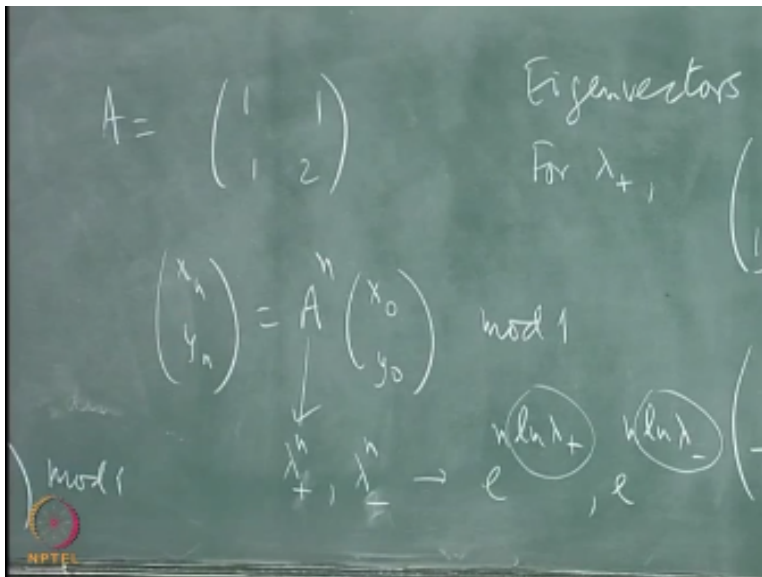 A = ( 1 1
1 2 )
Eigenvectors
For λ₊, ( 1
( xₙ
yₙ ) = Aⁿ ( x₀
y₀ ) mod 1
) mod 1
λ₊ⁿ, λ₋ⁿ → e^(n ln λ₊), e^(n ln λ₋) ( −
NPTEL